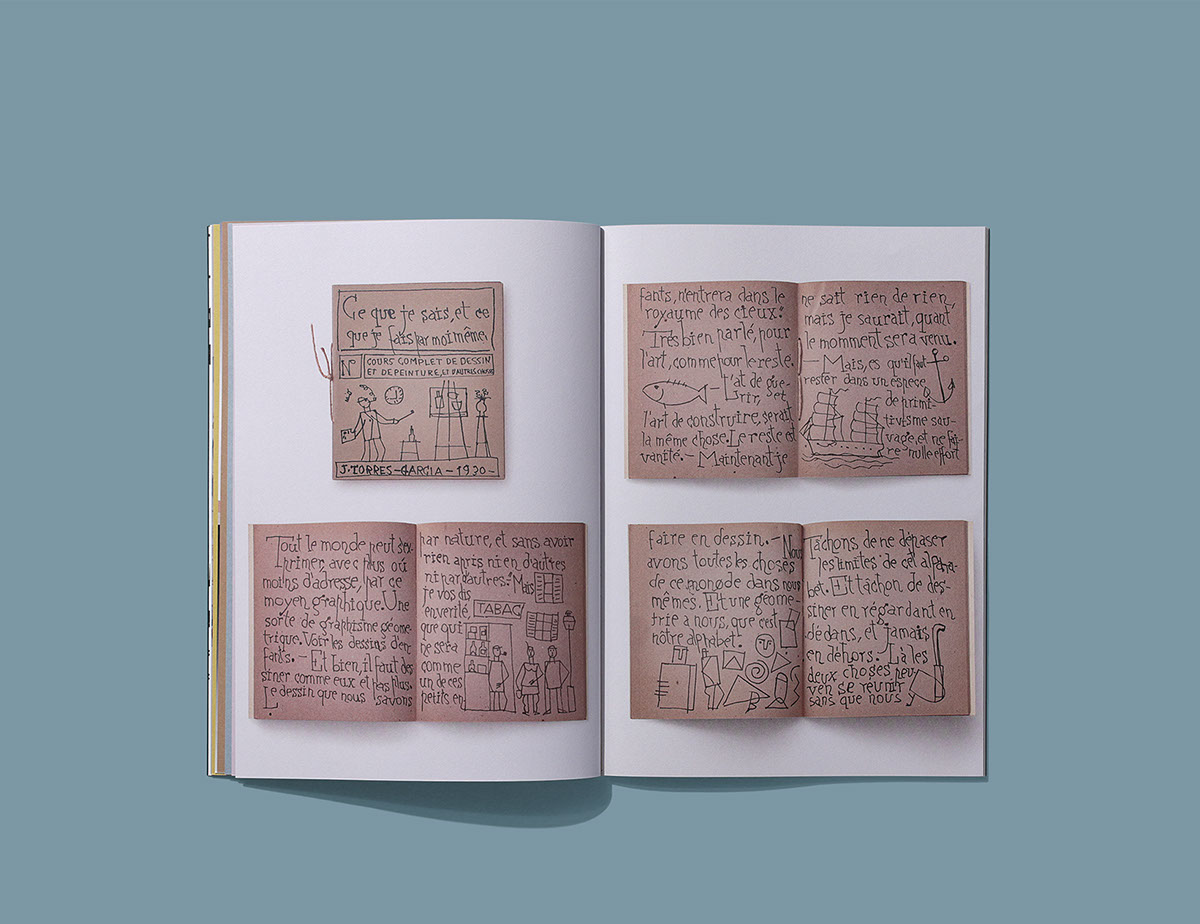 Ce que je sais, et ce
que je fais par moi même.
Nº
COURS COMPLET DE DESSIN
ET DE PEINTURE, ET D'AUTRES
J. TORRES-GARCIA-1930-
Tout le monde peut s'ex-
primer, avec plus où
moins d'adresse, par ce
moyen graphique. Une
sorte de graphisme géome-
trique. Voir les dessins d'en-
fants.— Et bien, il faut des-
siner comme eux et plus plus.
Le dessin que nous savons
par nature, et sans avoir
rien apris ni en d'autres
ni par d'autres. Mais
je vos dis
enverité,
que qui
ne sera
comme
un de ces
petits en
TABAC
fants, n'entrera dans le
royaume des cieux."
Très bien parlé, pour
l'art, comme pour le reste.
L'at de gue-
rir, et
l'art de construire, serait
la même chose. Le reste est
vanité.— Maintenant je
ne sait rien de rien,
mais je saurait, quant
le momment sera venu.
—Mais, es qu'il faut
rester dans un espece
de primi-
tivisme sau-
vage, et ne fai-
re nulle effort
faire en dessin.— Nous
avons toutes les choses
de ce monde dans nous
mêmes. Et une géome-
trie a nous, que c'est
nôtre alphabet.
Tâchons, de ne dépaser
les limites de cet alpha-
bet. Et tâchon de des-
siner en régardant en
dédans, et jamais
en déhors. Là les
deux choses peu-
ven se réunir
sans que nous